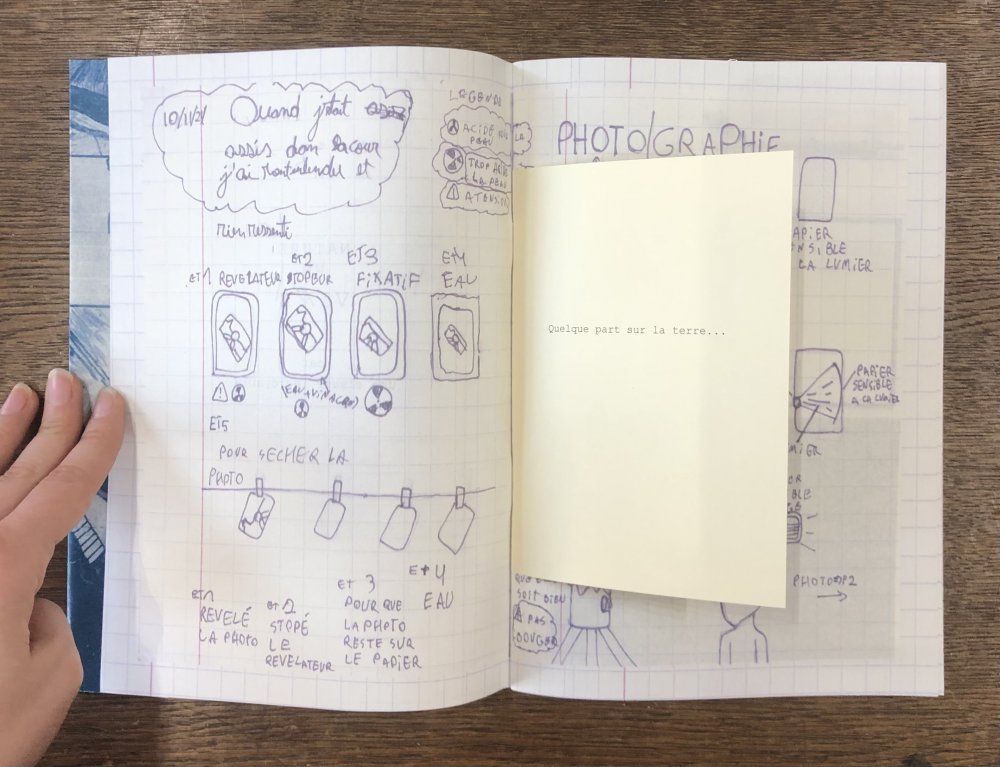 10/11/21 Quand j'etait
assis dan la cour
j'ai rontentendu et
rien ressenti
LEGENDE
ACIDE
PEAU
TROP
LA PEAU
ET1 REVELATEUR
ET2
STOPEUR
ET3
FiXATiF
ET4
EAU
(EAU+VINAGRE)
ET5
POUR SECHER LA
PHOTO
ET1
REVELÉ
LA PHOTO
ET2
STOPÉ
LE
REVELATEUR
ET 3
POUR QUE
LA PHOTO
RESTE SUR
LE PAPiER
ET 4
EAU
PHOTO/GRAPHiE
Quelque part sur la terre...
APiER
NSiBLE
LA LUMiER
PAPiER
SENSiBLE
A LA LUMiER
MiER
iBLE
PHOTO DP2
SOiT
PAS
BOUGER